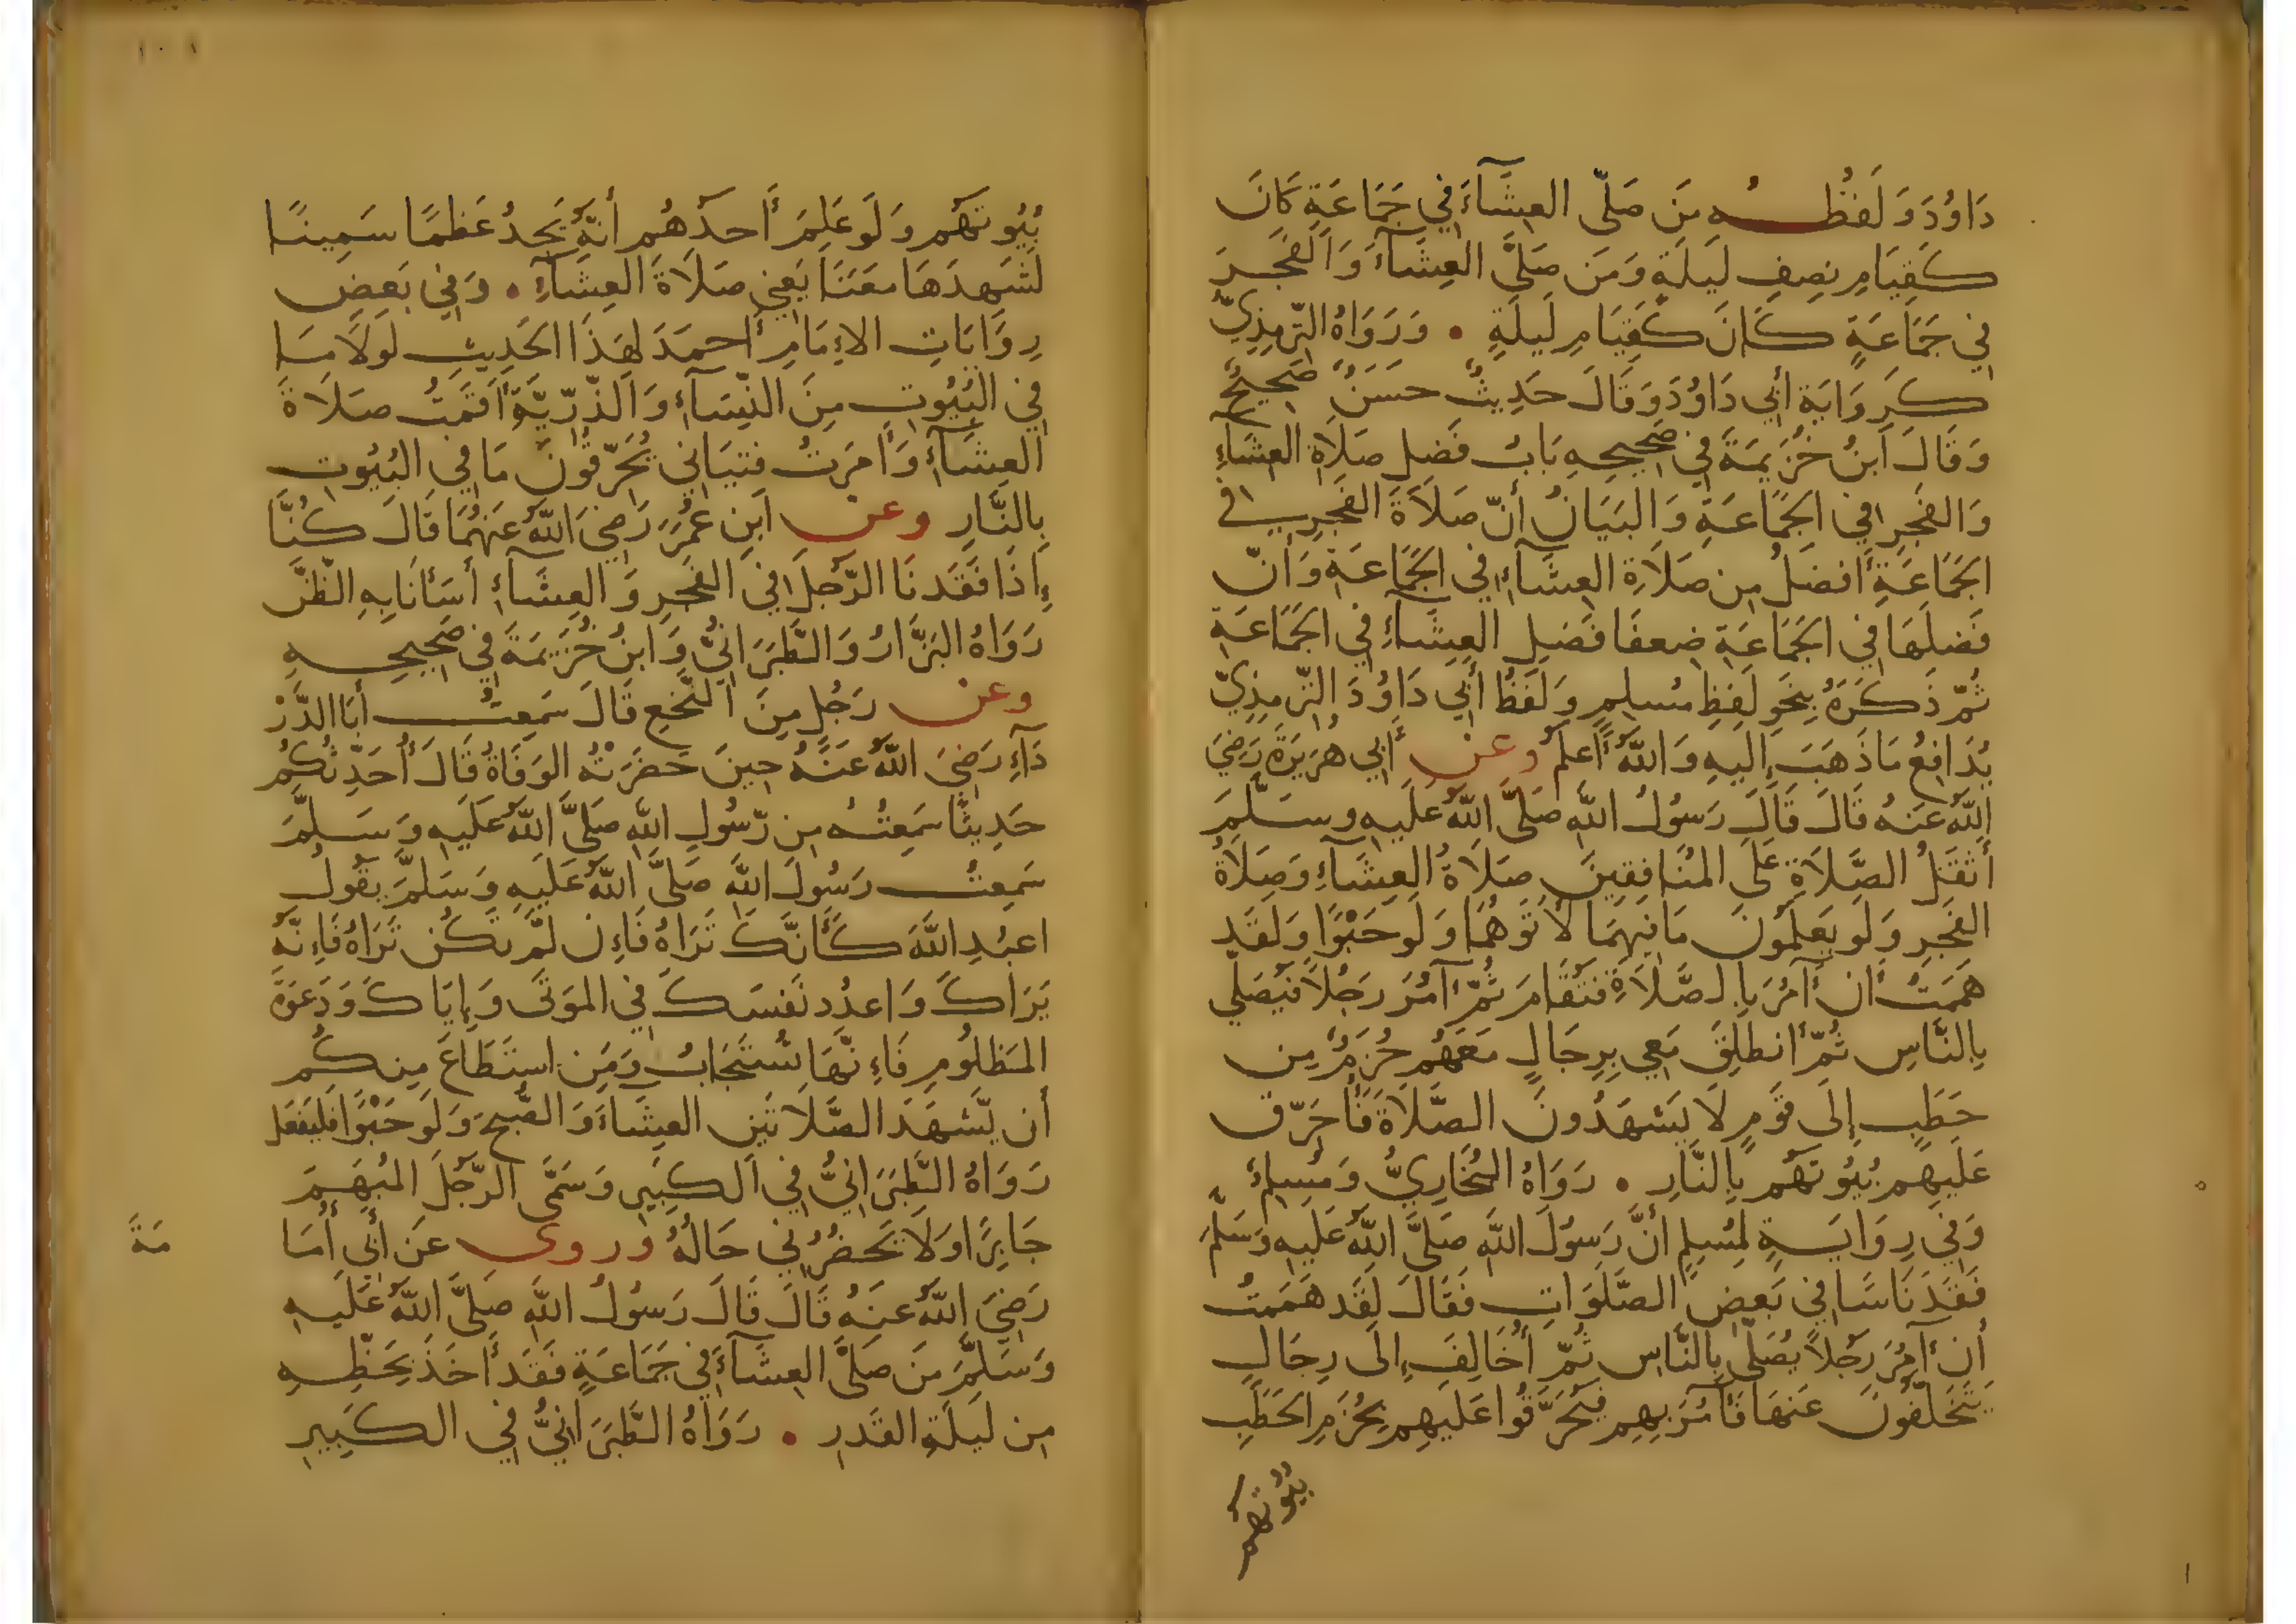 دَاوُدَ وَلَفظُـهُ مَن صَلّى العِشَآءَ فِي جَمَاعَةٍ كَانَ
كَقِيَامِ نِصفِ لَيلَةٍ وَمَن صَلَّى العِشَآءَ وَالفَجرَ
فِي جَمَاعَةٍ كَانَ كَقِيَامِ لَيلَةٍ • وَرَوَاهُ التّرمِذِيّ
كَرِوَايَةِ أَبِي دَاوُدَ وَقَالَ حَدِيثٌ حسَنٌ صَحِيحٌ
وَقَالَ ابنُ خُزَيمَةَ فِي صَحِيحِهِ بَابُ فَضلِ صَلَاةِ العِشَاءِ
وَالفَجرِ فِي الجَمَاعَةِ وَالبَيَانُ أَنّ صَلَاةَ الفَجرِ فِي
الجَمَاعَةِ أَفضَلُ مِن صَلَاةِ العِشَآءِ فِي الجَمَاعَةِ وَأَنّ
فَضلَهَا فِي الجَمَاعَةِ ضِعفَا فَضلِ العِشَآءِ فِي الجَمَاعَةِ
ثُمّ ذَكَرَهُ بِنَحوِ لَفظِ مُسلِمٍ وَلَفظُ أَبِي دَاوُدَ وَالتّرمِذِيّ
يُدَافِعُ مَا ذَهَبَ إِلَيهِ وَاللّهُ أَعلَمُ وعن أَبِي هُرَيرَةَ رَضِيَ
اللّهُ عَنهُ قَالَ قَالَ رَسُولُ اللّهِ صَلَّى اللّهُ عَلَيهِ وسَلَّمَ
أَثقَلُ الصَّلَاةِ عَلَى المُنَافِقِينَ صَلَاةُ العِشَآءِ وَصَلَاةُ
الفَجرِ وَلَو يَعلَمُونَ مَا فِيهِمَا لَأَتَوهُمَا وَلَو حَبْوًا وَلَقَد
هَمَمتُ أَن آمُرَ بِالصَّلَاةِ فَتُقَامَ ثُمّ آمُرَ رَجُلًا فَيُصَلّي
بِالنَّاسِ ثُمّ أَنطَلِقَ مَعِي بِرِجَالٍ مَعَهُم حُزَمٌ مِن
حَطَبٍ إِلَى قَومٍ لَا يَشهَدُونَ الصَّلَاةَ فَأُحَرّقَ
عَلَيهِم بُيُوتَهُم بِالنَّارِ • رَوَاهُ البُخَارِيُّ وَمُسلِمٌ
وَفِي رِوَايَـةٍ لِمُسلِمٍ أَنَّ رَسُولَ اللّهِ صَلَّى اللّهُ عَلَيهِ وَسَلَّمَ
فَقَدَ نَاسًا فِي بَعضِ الصَّلَوَاتِ فَقَالَ لَقَد هَمَمتُ
أَن آمُرَ رَجُلًا يُصَلّى بِالنَّاسِ ثُمّ أُخَالِفَ إِلَى رِجَالٍ
يَتَخَلّفُونَ عَنهَا فَآمُرَ بِهِم فَيُحَرّقُوا عَلَيهِم بِحُزَمِ الحَطَبِ
بُيُوتَهُم
١٠١
بُيُوتَهُم وَلَو عَلِمَ أَحدُهُم أَنَّهُ يَجِدُ عَظمًا سَمِينًا
لَشَهِدَهَا مَعَنَا يَعنِي صَلَاةَ العِشَآءِ • وَفِي بَعضِ
رِوَايَاتِ الإِمَامِ أَحمَدَ لِهَذَا الحَدِيثِ لَولَا مَـا
فِي البُيُوتِ مِنَ النِّسَآءِ وَالذّرّيَّةِ أَقَمتُ صَلَاةَ
العِشَآءِ وَأَمَرتُ فِتيَانِي يُحَرّقُونَ مَا فِي البُيُوتِ
بِالنَّارِ وعن ابنِ عُمَرَ رَضِيَ اللّهُ عَنهُمَا قَالَ كُنَّا
إِذَا فَقَدنَا الرّجُلَ فِي الفَجرِ وَالعِشَآءِ أَسَأنَا بِهِ الظّنَّ
رَوَاهُ البَزَّارُ وَالطَّبَرَانِيُّ وَابنُ خُزَيمَةَ فِي صَحِيحِـهِ
وعن رَجُلٍ مِنَ النّخَعِ قَالَ سَمِعتُ أَبَا الدَّرْ
دَآءِ رَضِيَ اللّهُ عَنهُ حِينَ حَضَرَتْهُ الوَفَاةُ قَالَ أُحَدِّثُكُم
حَدِيثًا سَمِعتُهُ مِن رّسُولِ اللّهِ صَلَّى اللّهُ عَلَيهِ وَسَلَّمَ
سَمِعتُ رَسُولَ اللّهِ صَلَّى اللّهُ عَلَيهِ وَسَلَّمَ يَقُولُ
اعبُدِ اللّهَ كَأَنَّكَ تَرَاهُ فَإِن لَّم تَكُن تَرَاهُ فَإِنَّهُ
يَرَاكَ وَاعدُد نَفسَكَ فِي المَوتَى وَإِيَاكَ وَدَعوَةَ
المَظلُومِ فَإِنَّهَا تُستَجَابُ وَمَنِ استَطَاعَ مِنكُم
أَن يّشهَدَ الصَّلَاتَينِ العِشَآءَ وَالصُّبحَ وَلَو حَبْوًا فَليَفعَل
رَوَاهُ الطَّبَرَانِيُّ فِي الكَبِيرِ وَسَمَّى الرّجُلَ المُبهَمَ
جَابِرًا وَلَا يَحضُرُنِي حَالُهُ وروى عَن أَبِي أُمَا
مَةَ
رَضِيَ اللّهُ عَنهُ قَالَ قَالَ رَسُولُ اللّهِ صَلَّى اللّهُ عَلَيهِ
وَسَلَّمَ مَن صَلَّى العِشَآءَ فِي جَمَاعَةٍ فَقَد أَخَذَ بِحَظِّـهِ
مِن لَيلَةِ القَدرِ • رَوَاهُ الطَّبَرَانِيُّ فِي الكَبِيرِ